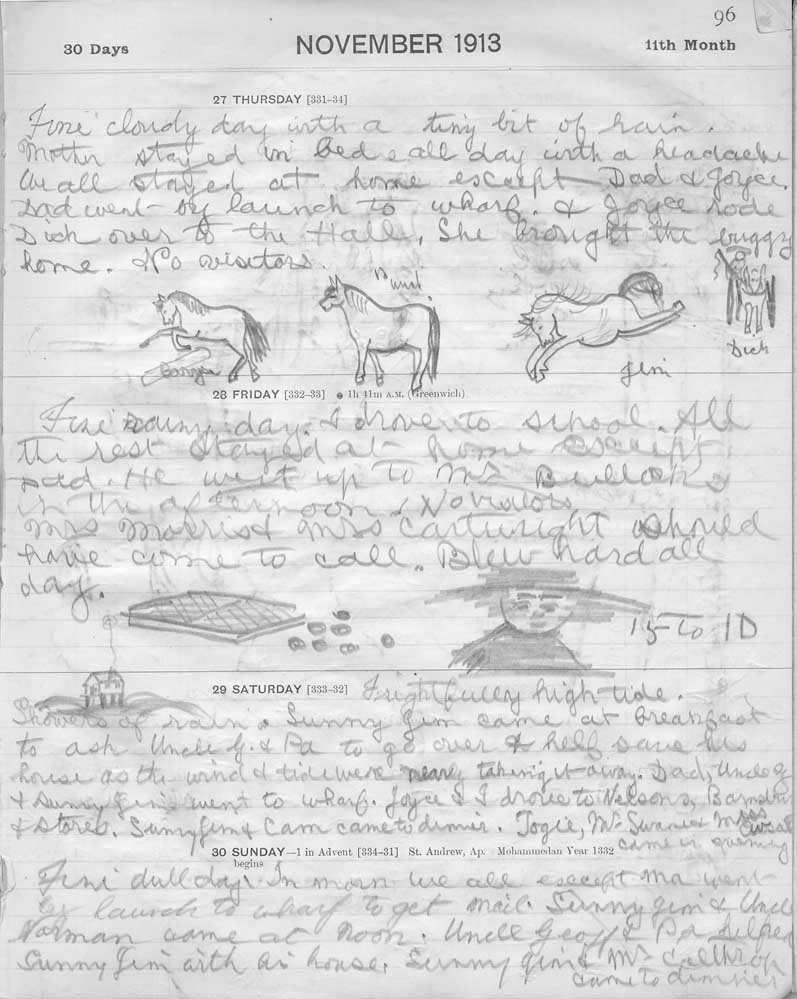 96
30 Days NOVEMBER 1913 11th Month
27 THURSDAY [331-34]
Fine cloudy day with a tiny bit of rain.
Mother stayed in bed all day with a headache
We all stayed at home except Dad & Joyce.
Dad went by launch to wharf. & Joyce rode
Dick over to the Halls, She brought the buggy
home. No visitors.
Dick
Jim
28 FRIDAY [332-33] 1h 41m A.M. (Greenwich)
Fine day. I drove to school. All
the rest stayed at home except
Dad. He went up to Mr Bullocks
in the afternoon. No visitors
Mrs Morris & Mrs Cartwright should
have come to call. Blew hard all
day.
15 to 10
29 SATURDAY [333-32] Frightfully high tide.
Showers of rain. Sunny Jim came at breakfast
to ask Uncle G. & Pa to go over & help save his
house as the wind & tide were nearly taking it away. Dad, Uncle G
& Sunny Jim went to wharf. Joyce & I drove to Nelsons,
& stores. Sunny Jim & Cam came to dinner. Togie, Mr Swanie &
came in evening
30 SUNDAY—1 in Advent [334-31] St. Andrew, Ap. Mohammedan Year 1332
begins
Fine dull day. In morn we all except Ma went
by launch to wharf to get mail. Sunny Jim & Uncle
Norman came at noon. Uncle Geoff & Pa helped
Sunny Jim with his house. Sunny Jim & Mr Calthrop
came to dinner